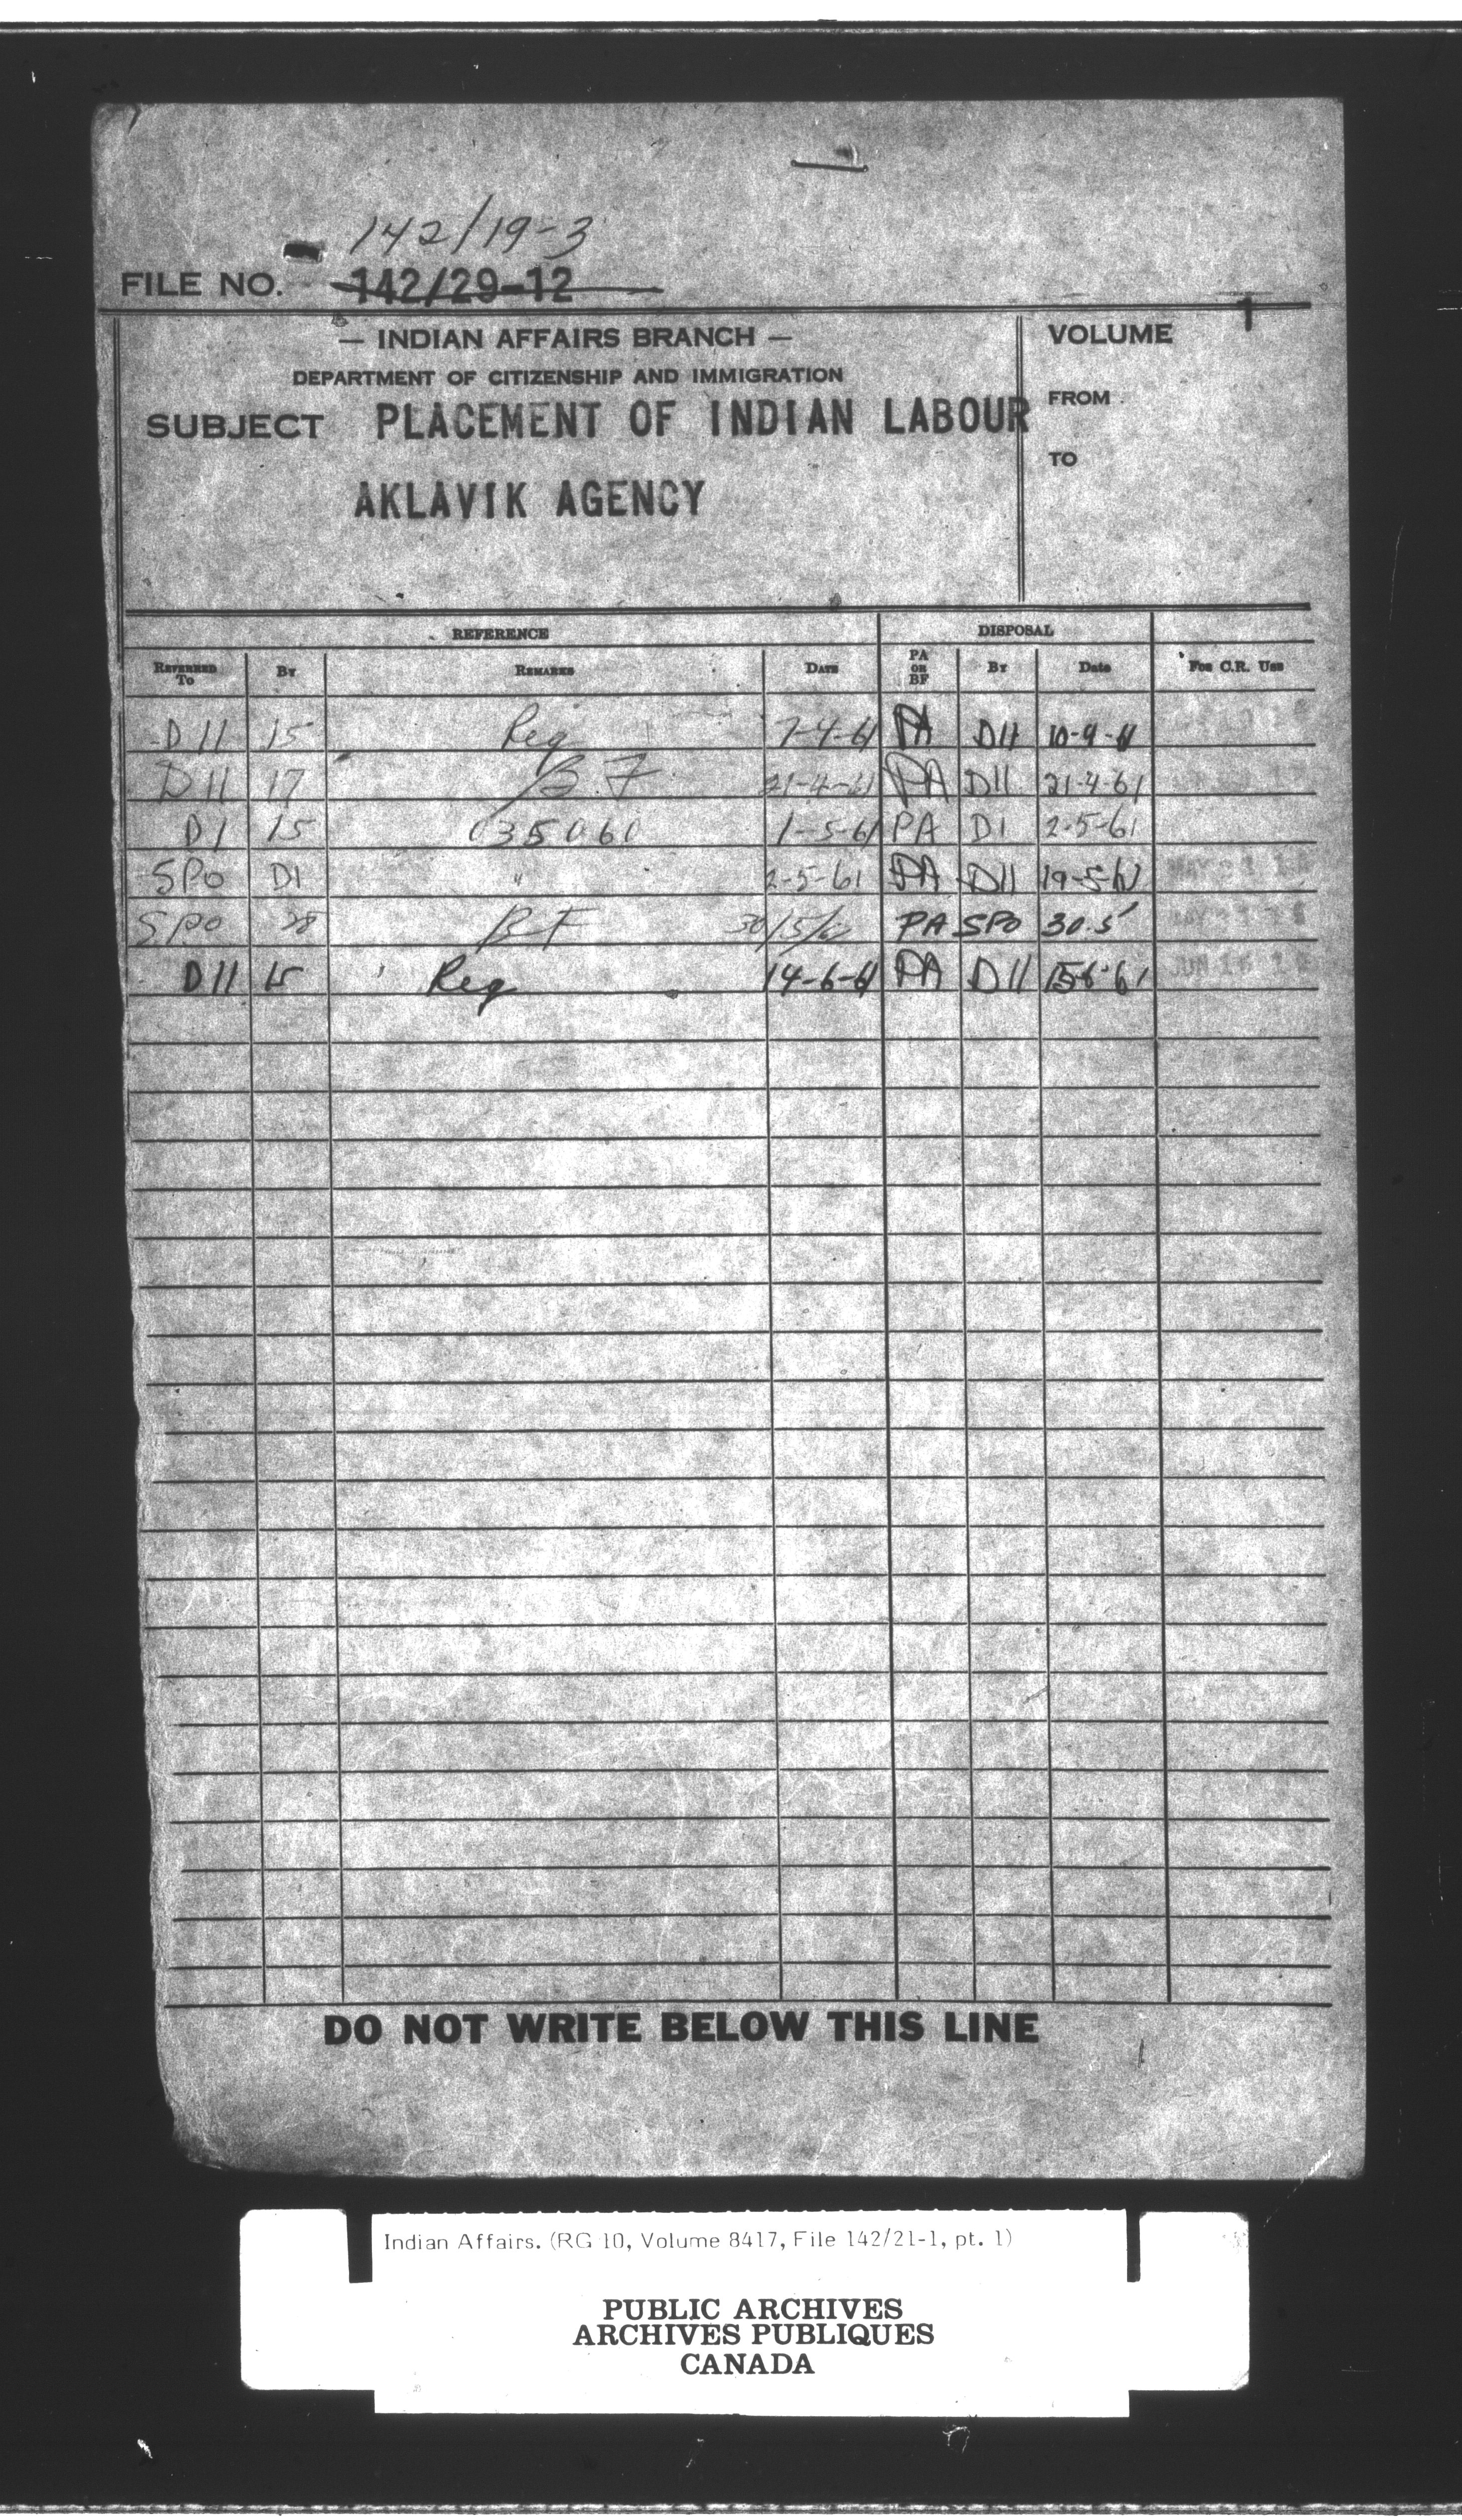 142/19-3
FILE NO. 142/29-12
— INDIAN AFFAIRS BRANCH —
DEPARTMENT OF CITIZENSHIP AND IMMIGRATION
SUBJECT PLACEMENT OF INDIAN LABOUR
AKLAVIK AGENCY
VOLUME 1
FROM
TO
REFERENCE DISPOSAL
REFERRED TO BY REMARKS DATE PA OR BF BY Date For C.R. Use
D11 15 Reg 7-4-61 PA D11
D11 17 B.F 21-4-61 PA D11 21-4-61
D1 15 035060 1-5-61 PA D1 2-5-61
SPO D1 " 2-5-61 PA D11 19-5-61
SPO 28 BF 30/5/61 PA SPO 30.5
D11 15 Reg 14-6-61 PA D11 15-6-61 JUN 16
DO NOT WRITE BELOW THIS LINE
Indian Affairs. (RG 10, Volume 8417, File 142/21-1, pt. 1)
PUBLIC ARCHIVES
ARCHIVES PUBLIQUES
CANADA